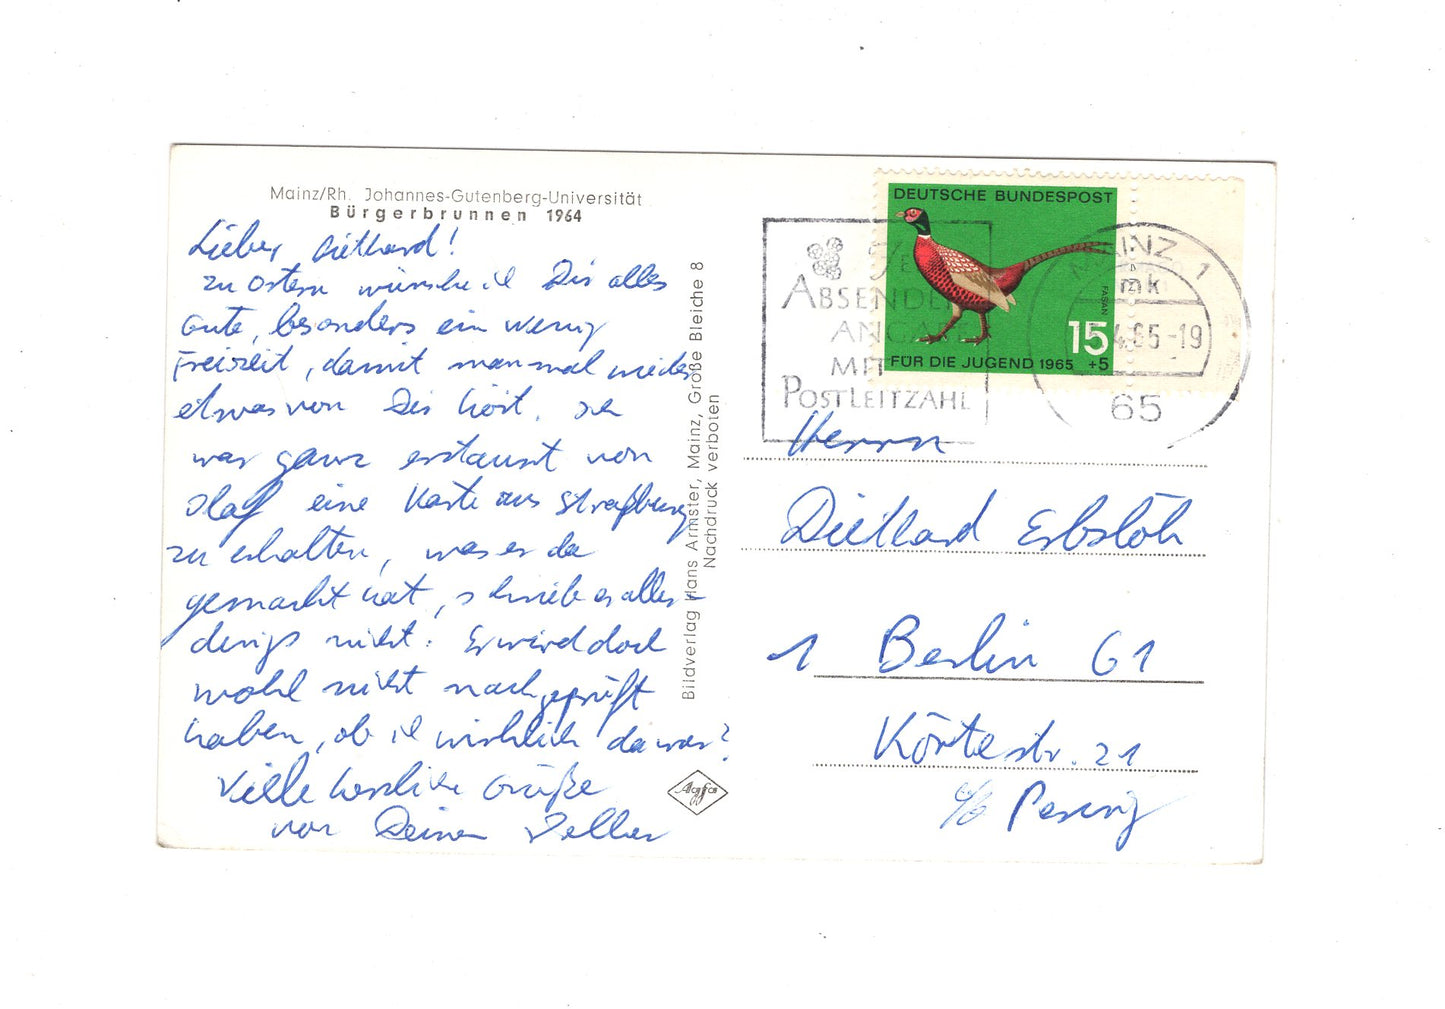 Mainz/Rh. Johannes-Gutenberg-Universität
Bürgerbrunnen 1964
Lieber Diethard!
zu Ostern wünsche ich Dir alles
Gute, besonders ein wenig
Freizeit, damit man mal wieder
etwas von Dir hört. Ich
war ganz erstaunt von
Olaf eine Karte aus Straßburg
zu erhalten, was er da
gemacht hat, schrieb er aller-
dings nicht. Er wird doch
wohl nicht nachgeprüft
haben, ob ich wirklich da war?
Viele herzliche Grüße
von Deinem
Bildverlag Hans Armster, Mainz, Große Bleiche 8
Nachdruck verboten
Agfa
DEUTSCHE BUNDESPOST
FASAN
15
+5
FÜR DIE JUGEND 1965
ABSENDER
ANGA
MIT
POSTLEITZAHL
MAINZ 1
mk
4.65-19
65
Herrn
Diethard Erbslöh
1 Berlin 61
Körtestr. 21
c/o